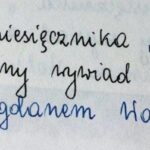 miesięcznika
ny wywiad
gdanem